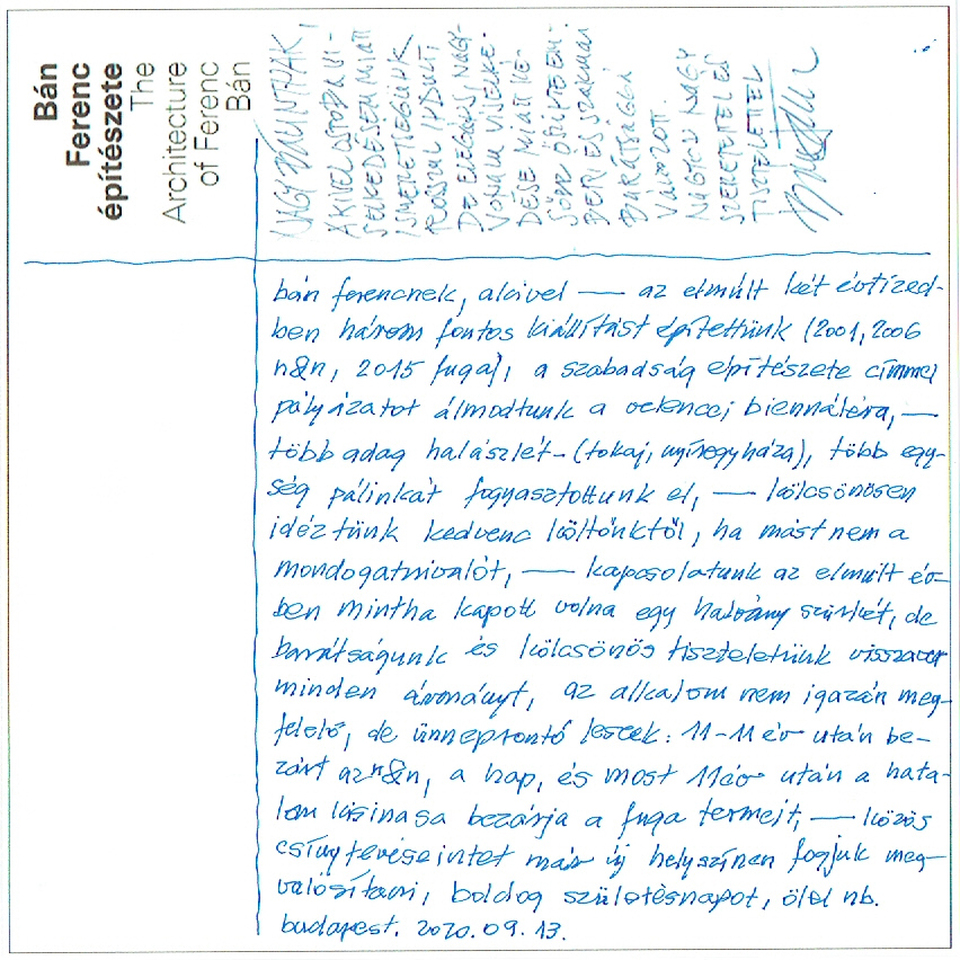 Bán
Ferenc
építészete
The
Architecture
of Ferenc
Bán
NAGY BÁLINTNAK,
AKIVEL OSTOBA VI-
SELKEDÉSEM MIATT
ISMERETSÉGÜNK
ROSSZUL INDULT
DE ELEGÁNS, NAGY-
VONALÚ VISELKE-
DÉSE MIATT KÉ-
SŐBB ŐSZINTE EM-
BERI ÉS SZAKMAI
BARÁTSÁGGÁ
VÁLTOZOTT.
NAGYON NAGY
SZERETETTEL ÉS
TISZTELETTEL
bán ferencnek, akivel — az elmúlt két évtized-
ben három fontos kiállítást építettünk (2001, 2006
n&n, 2015 fuga), a szabadság építészete címmel
pályázatot álmodtunk a velencei biennáléra, —
több adag halászlét - (tokaj, nyíregyháza), több egy-
ség pálinkát fogyasztottunk el, — kölcsönösen
idéztünk kedvenc költőnktől, ha mást nem a
mondogatnivalót, — kapcsolatunk az elmúlt év-
ben mintha kapott volna egy halvány szürkét, de
barátságunk és kölcsönös tiszteletünk visszaver
minden árományt, az alkalom nem igazán meg-
felelő, de ünneprontó leszek: 11-11 év után be-
zárt az n&n, a hap, és most 11 év után a hata-
lom kisinasa bezárja a fuga termeit, — közös
csínytevéseintet már új helyszínen fogjuk meg-
valósítani, boldog születésnapot, ölel nb.
budapest. 2020. 09. 13.